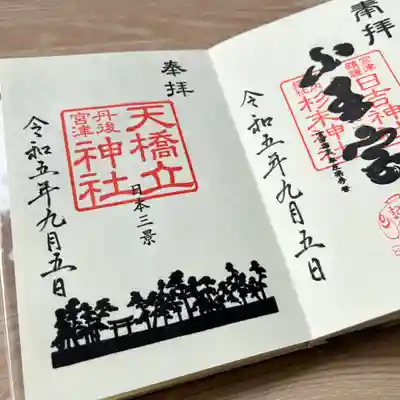 奉拝
山王宮
宮津
日吉神社
杉末神社
令和五年九月五日
奉拝
天橋立
丹後
宮津
神社
日本三景
令和五年九月五日